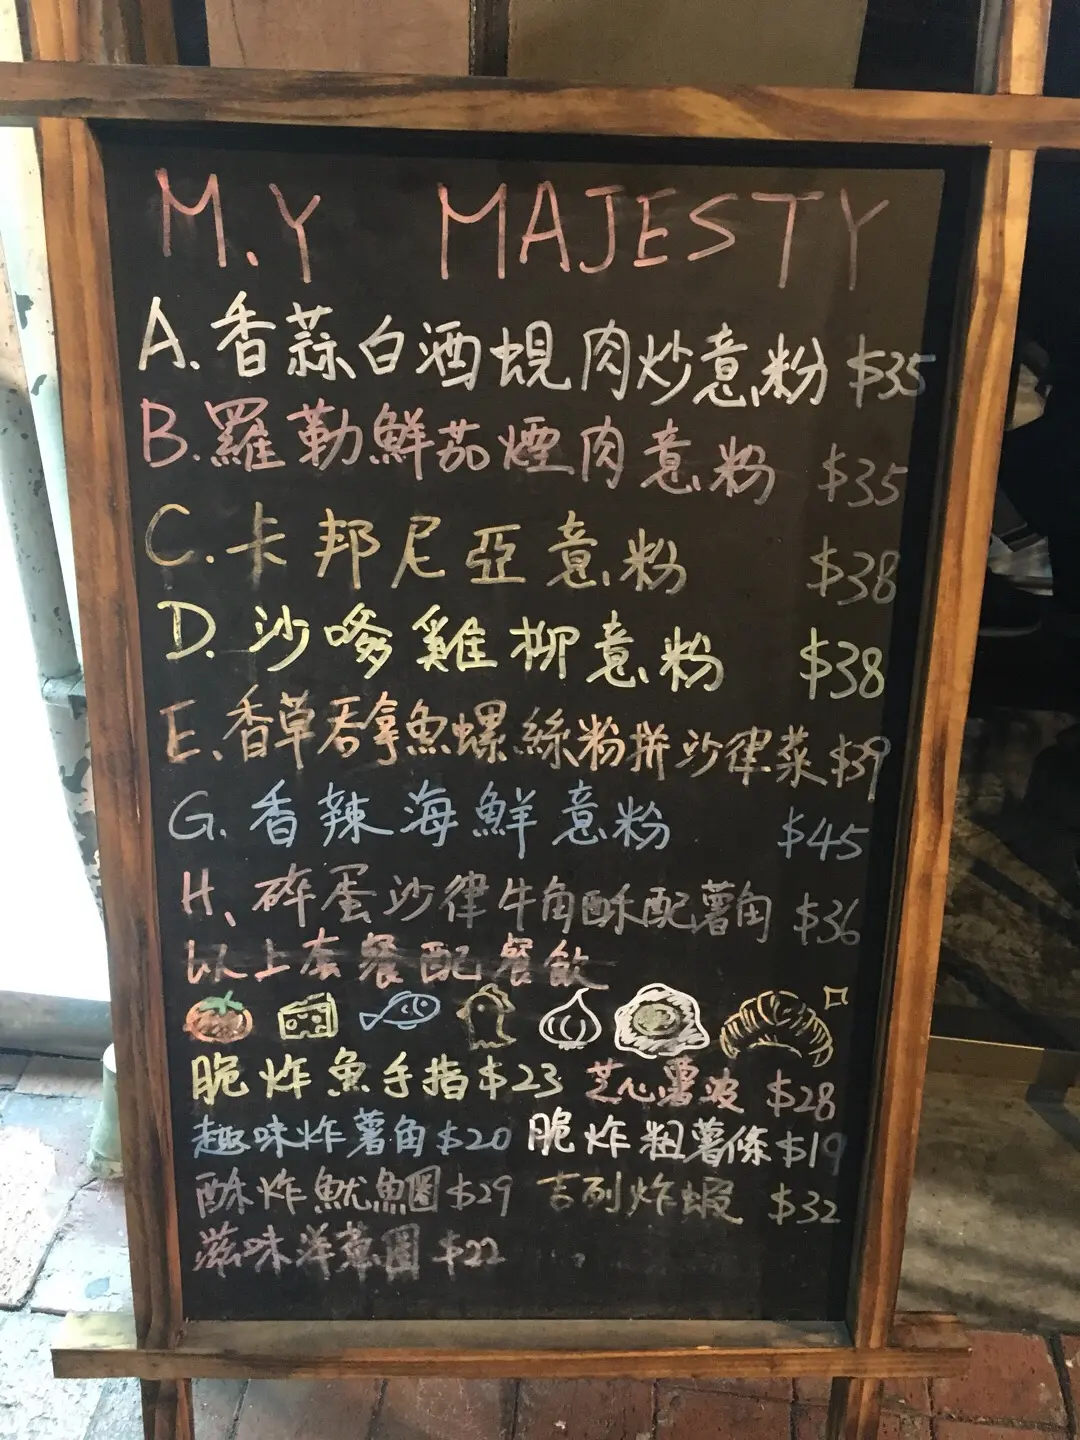 M.Y MAJESTY
A.香蒜白酒蜆肉炒意粉 $35
B.羅勒鮮茄煙肉意粉 $35
C.卡邦尼亞意粉 $38
D.沙嗲雞柳意粉 $38
E.香草吞拿魚螺絲粉拼沙律菜 $39
G.香辣海鮮意粉 $45
H、碎蛋沙律牛角酥配薯角 $36
以上套餐配餐飲
脆炸魚手指$23 芝心薯波 $28
趣味炸薯角$20 脆炸粗薯條$19
酥炸魷魚圈$29 吉列炸蝦 $32
滋味洋蔥圈 $22